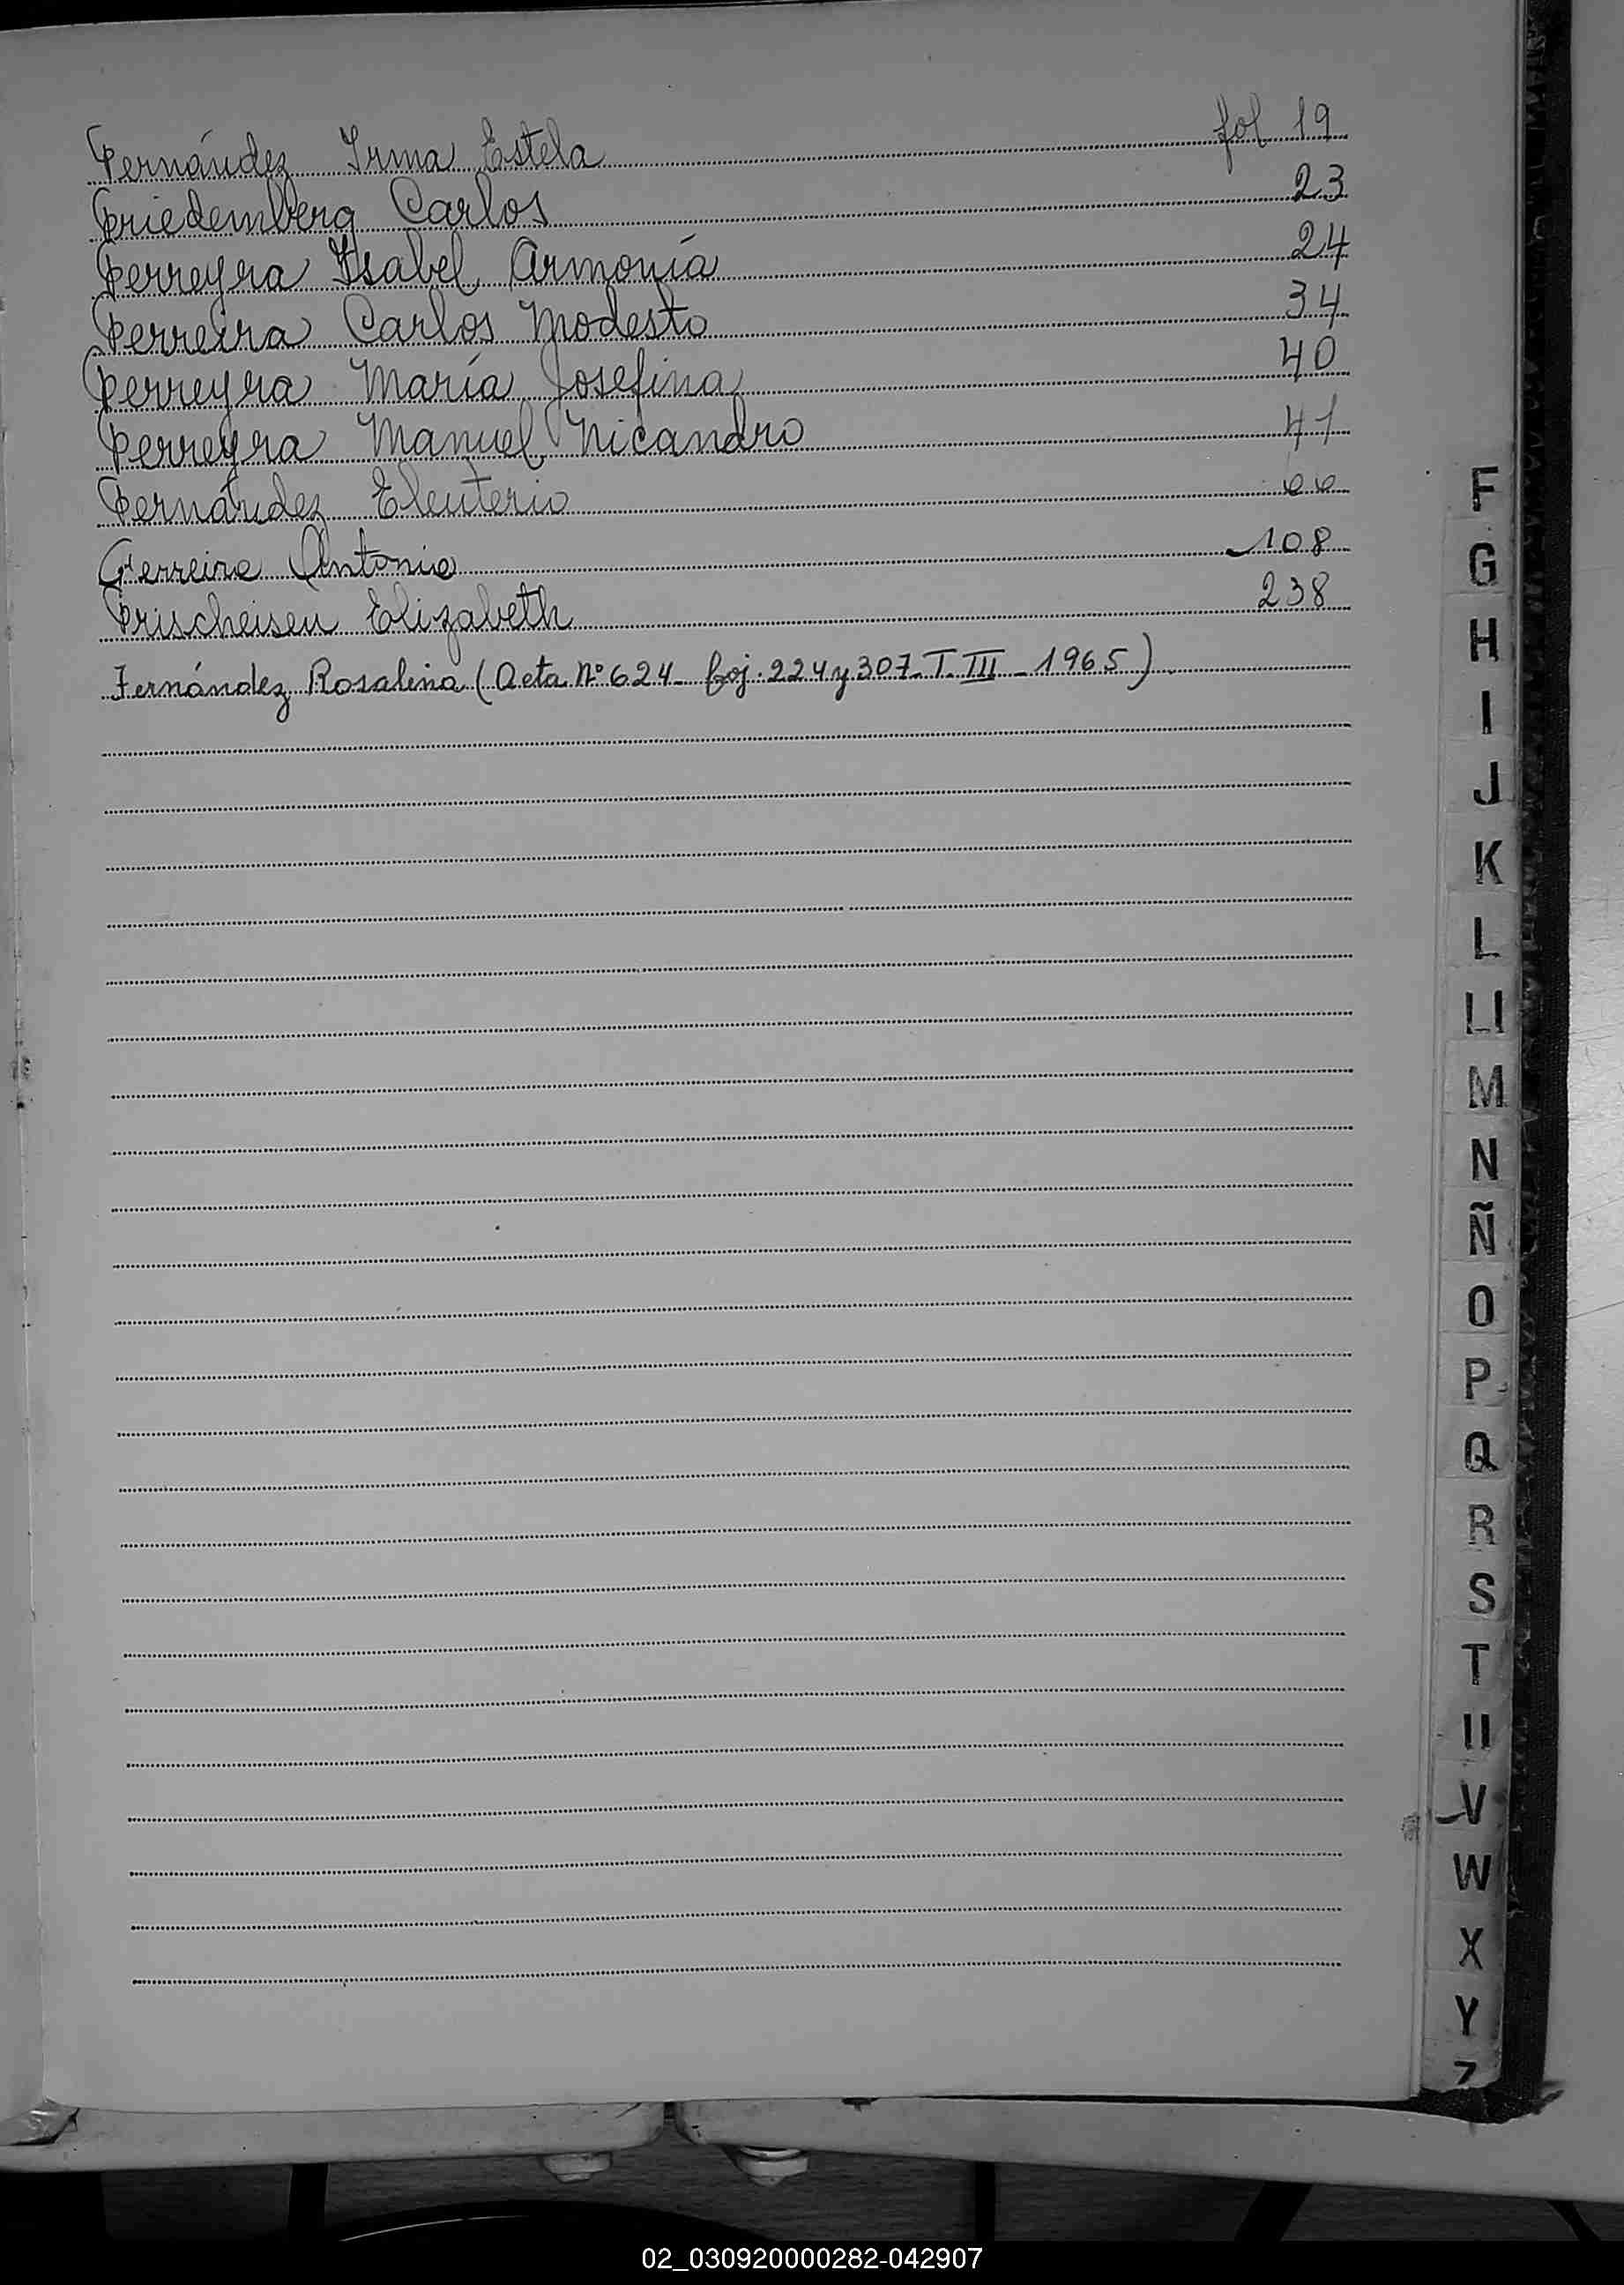 Fernández Irma Estela fol 19
Friedemberg Carlos 23
Ferreyra Isabel Armonía 24
Ferreira Carlos Modesto 34
Ferreyra María Josefina 40
Ferreyra Manuel Nicandro 41
Fernández Eleuterio
Ferreira Antonio 108
Frischeisen Elizabeth 238
Fernández Rosalina (Acta Nº 624 - foj. 224 y 307 - T. III - 1965)
F
G
H
I
J
K
L
Ll
M
N
Ñ
O
P
Q
R
S
T
U
V
W
X
Y
Z
02_030920000282-042907